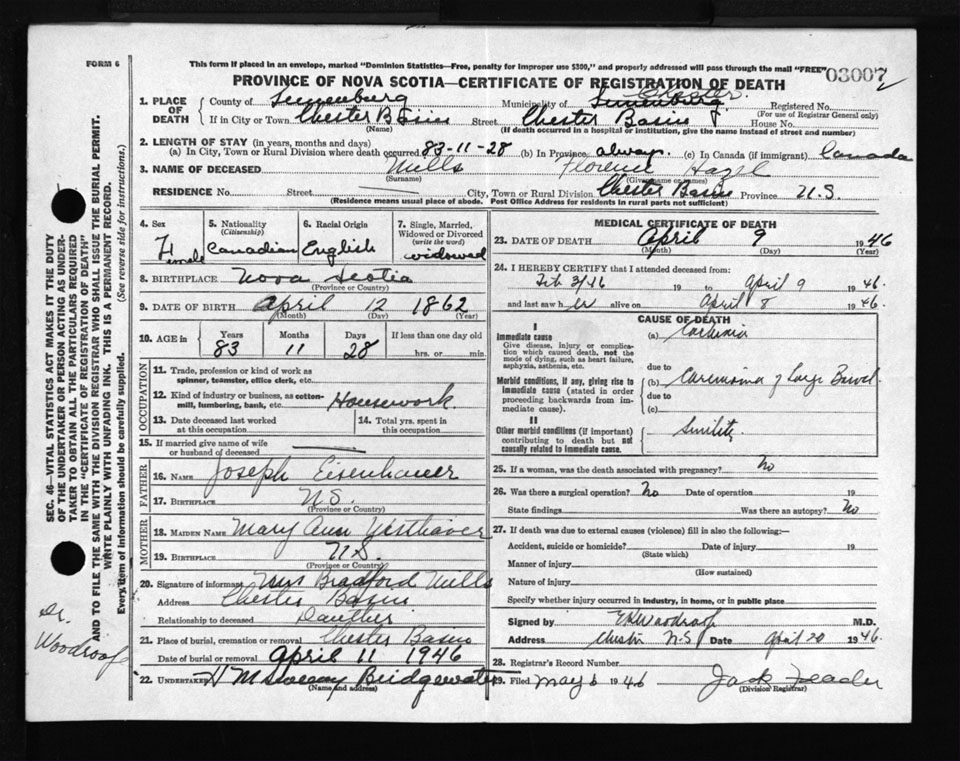 FORM 6
This form if placed in an envelope, marked "Dominion Statistics—Free, penalty for improper use $300," and properly addressed will pass through the mail "FREE"
03007
PROVINCE OF NOVA SCOTIA—CERTIFICATE OF REGISTRATION OF DEATH
1. PLACE OF DEATH
County of Lunenburg Municipality of Lunenburg Chester. Registered No.
(For use of Registrar General only)
If in City or Town Chester Basin Street Chester Basin House No.
(Name) (If death occurred in a hospital or institution, give the name instead of street and number)
2. LENGTH OF STAY (in years, months and days)
(a) In City, Town or Rural Division where death occurred 83-11-28 (b) In Province always. (c) In Canada (if immigrant) Canada
3. NAME OF DECEASED Mills Florence Hazel
(Surname) (Given or given names)
RESIDENCE No. Street City, Town or Rural Division Chester Basin Province N.S.
(Residence means usual place of abode. Post Office Address for residents in rural parts not sufficient)
4. Sex Female
5. Nationality (Citizenship) Canadian
6. Racial Origin English
7. Single, Married, Widowed or Divorced (write the word) widowed
8. BIRTHPLACE Nova Scotia
(Province or Country)
9. DATE OF BIRTH April 12 1862
(Month) (Day) (Year)
10. AGE in Years 83 Months 11 Days 28 If less than one day old hrs. or min.
OCCUPATION
11. Trade, profession or kind of work as spinner, teamster, office clerk, etc.
12. Kind of industry or business, as cotton-mill, lumbering, bank, etc. Housework.
13. Date deceased last worked at this occupation
14. Total yrs. spent in this occupation
15. If married give name of wife or husband of deceased
FATHER
16. Name Joseph Eisenhauer
17. Birthplace N.S.
(Province or Country)
MOTHER
18. Maiden Name Mary Ann Westhaver
19. Birthplace N.S.
(Province or Country)
20. Signature of informant Mrs Bradford Mills
Address Chester Basin
Relationship to deceased
21. Place of burial, cremation or removal Chester Basin
Date of burial or removal April 11 1946
22. Undertaker Bridgewater
(Name and address)
MEDICAL CERTIFICATE OF DEATH
23. DATE OF DEATH April 9 1946
(Month) (Day) (Year)
24. I HEREBY CERTIFY that I attended deceased from:
Feb 3/46 19 to April 9 1946.
and last saw her alive on April 8 1946.
CAUSE OF DEATH
I
Immediate cause
Give disease, injury or complication which caused death, not the mode of dying, such as heart failure, asphyxia, asthenia, etc.
(a)
due to
Morbid conditions, if any, giving rise to immediate cause (stated in order proceeding backwards from immediate cause).
(b) Carcinoma of Large Bowel
due to
(c)
II
Other morbid conditions (if important) contributing to death but not causally related to immediate cause.
Senility
25. If a woman, was the death associated with pregnancy? No
26. Was there a surgical operation? No Date of operation 19
State findings Was there an autopsy? No
27. If death was due to external causes (violence) fill in also the following:—
Accident, suicide or homicide? Date of injury 19
(State which)
Manner of injury
(How sustained)
Nature of injury
Specify whether injury occurred in industry, in home, or in public place
Signed by Woodroof M.D.
Address Chester N.S. Date April 20 1946.
28. Registrar's Record Number
29. Filed May 6 1946 Jack
(Division Registrar)
SEC. 46—VITAL STATISTICS ACT MAKES IT THE DUTY
OF THE UNDERTAKER OR PERSON ACTING AS UNDER-
TAKER TO OBTAIN ALL THE PARTICULARS REQUIRED
IN THE "CERTIFICATE OF REGISTRATION OF DEATH"
AND TO FILE THE SAME WITH THE DIVISION REGISTRAR WHO SHALL ISSUE THE BURIAL PERMIT.
WRITE PLAINLY WITH UNFADING INK. THIS IS A PERMANENT RECORD.
Every item of information should be carefully supplied. (See reverse side for instructions.)
Dr. Woodroof